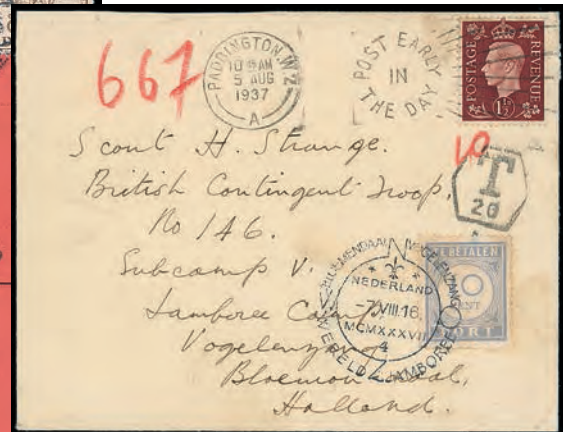 667
PADDINGTON. W.2
10 30 AM
5 AUG
1937
A
POST EARLY
IN
THE DAY
POSTAGE
REVENUE
1½D
10
T
20
Scout H. Strange.
British Contingent Troop,
No 146.
Subcamp V.
Jamboree Camp,
Vogelenzang
Bloemendaal,
Holland.
BLOEMENDAAL VOGELENZANG
NEDERLAND
-7.VIII.16.
MCMXXXVII
4
WERELD JAMBOREE
TE BETALEN
10
CENT
PORT